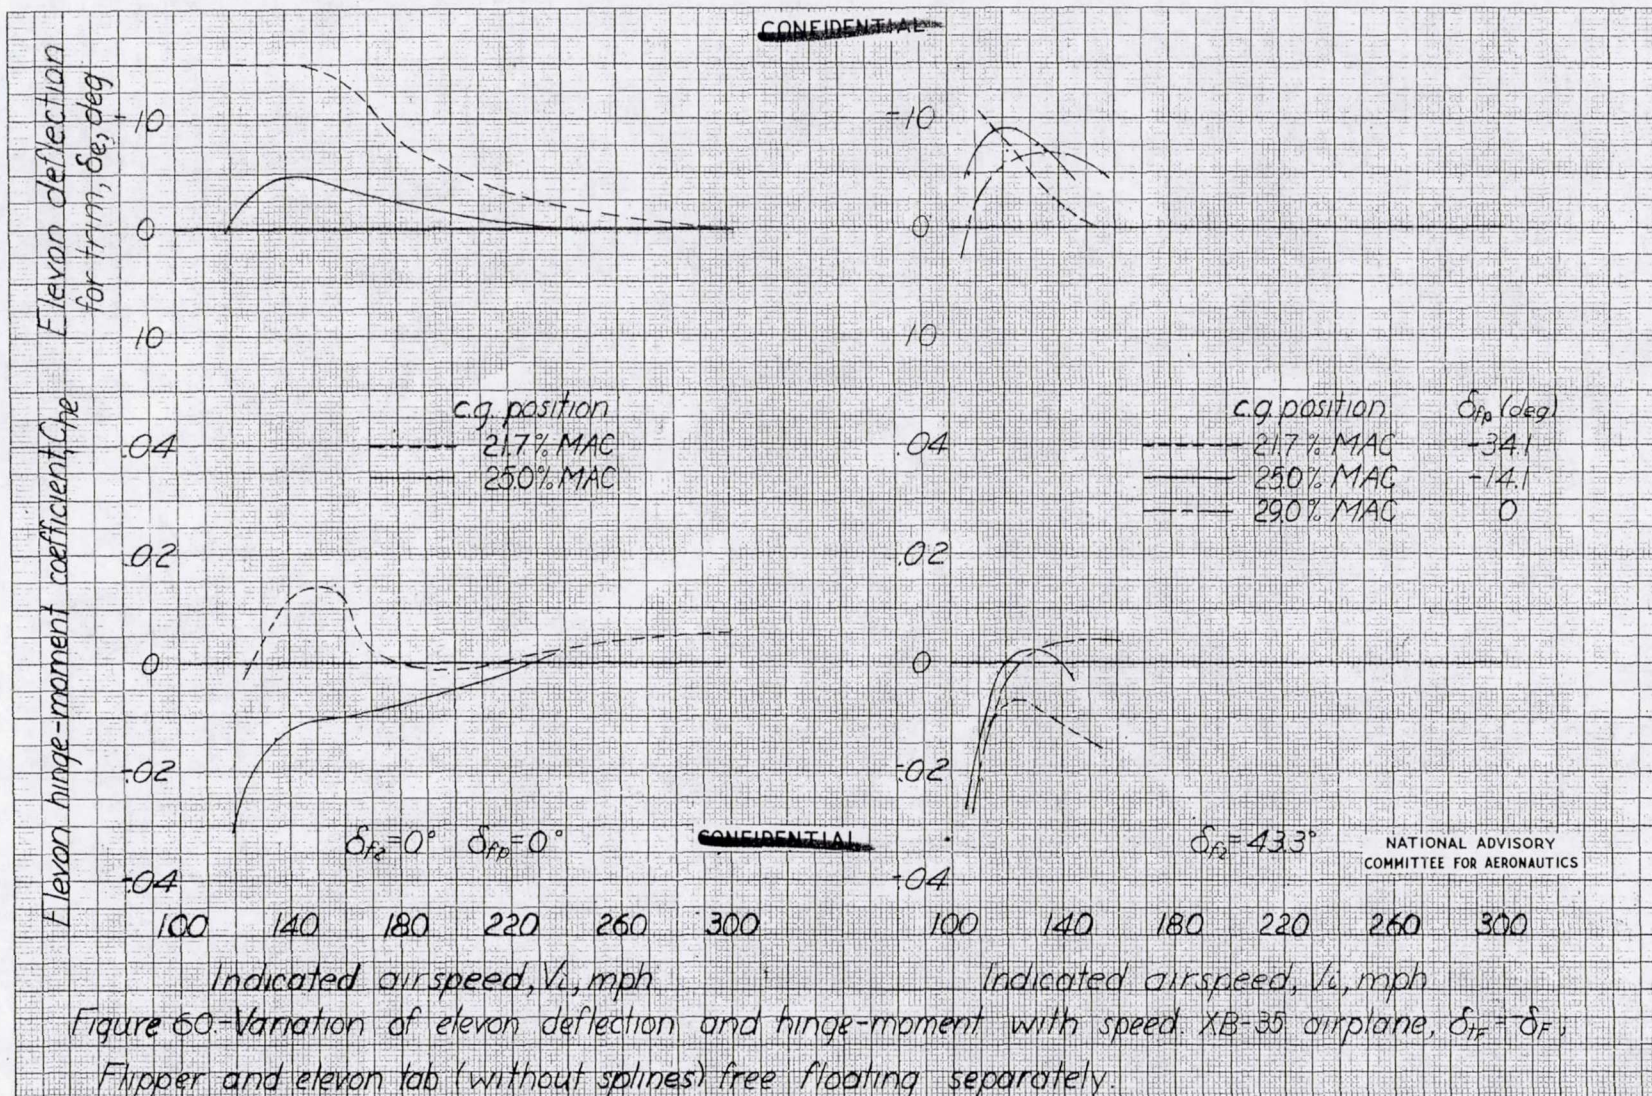 CONFIDENTIAL
Elevon deflection
for trim, δe, deg
-10
0
10
Elevon hinge-moment coefficient, Che
.04
.02
0
-.02
-.04
c.g. position
21.7% MAC
25.0% MAC
δf2=0° δfp=0°
100 140 180 220 260 300
Indicated airspeed, Vi, mph
-10
0
10
.04
.02
0
-.02
-.04
c.g. position δfp (deg)
21.7% MAC -34.1
25.0% MAC -14.1
29.0% MAC 0
CONFIDENTIAL
δf2=43.3°
NATIONAL ADVISORY
COMMITTEE FOR AERONAUTICS
100 140 180 220 260 300
Indicated airspeed, Vi, mph
Figure 60-Variation of elevon deflection and hinge-moment with speed. XB-35 airplane, δtF=-δF,
Flipper and elevon tab (without splines) free floating separately.